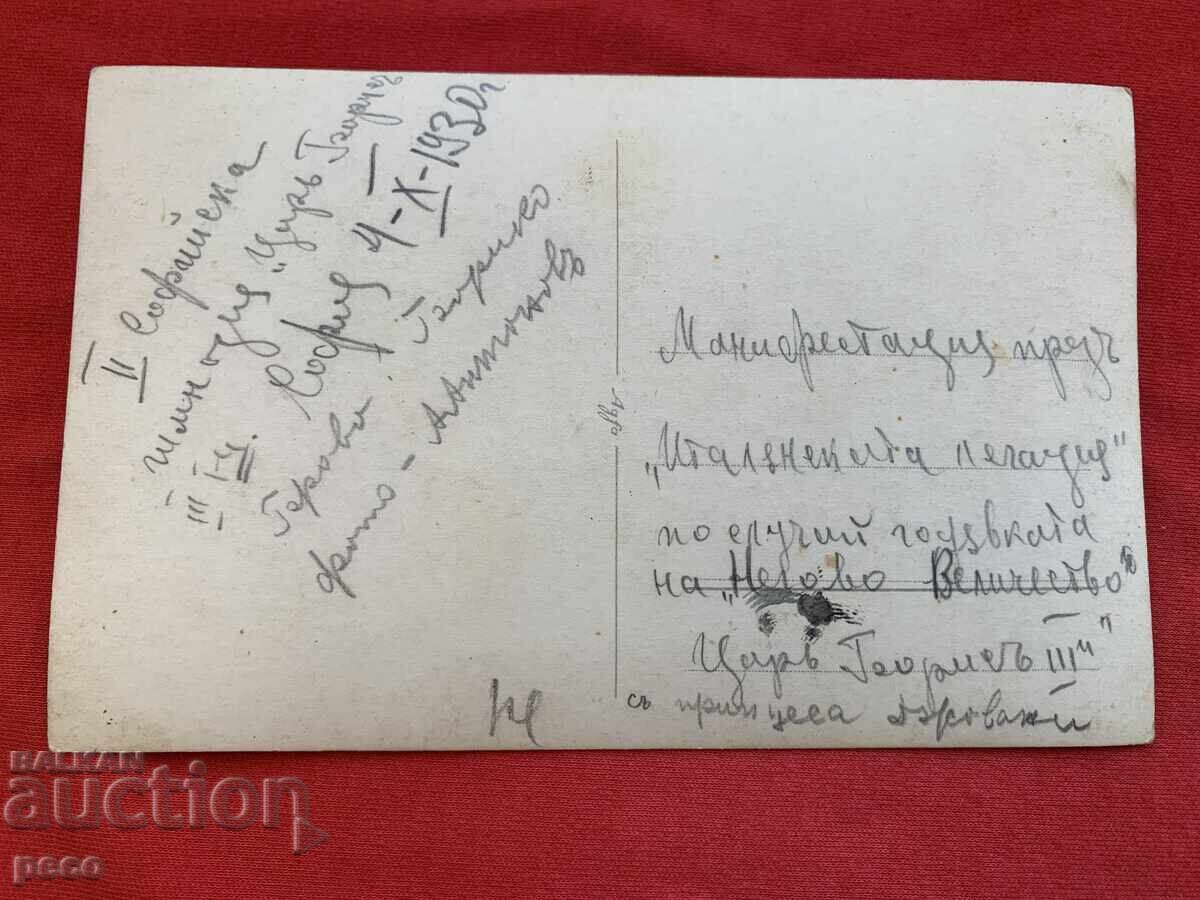 II Софийска
гимназия „Царъ Борисъ
III"
София 4-X-1930г
Борисъ
фото - Антоновъ
Манифестация предъ
„Италянската легация"
по случай годявката
на „Негово Величество"
Царъ Борисъ III"
съ принцеса Джовани
BALKAN
auction
peco